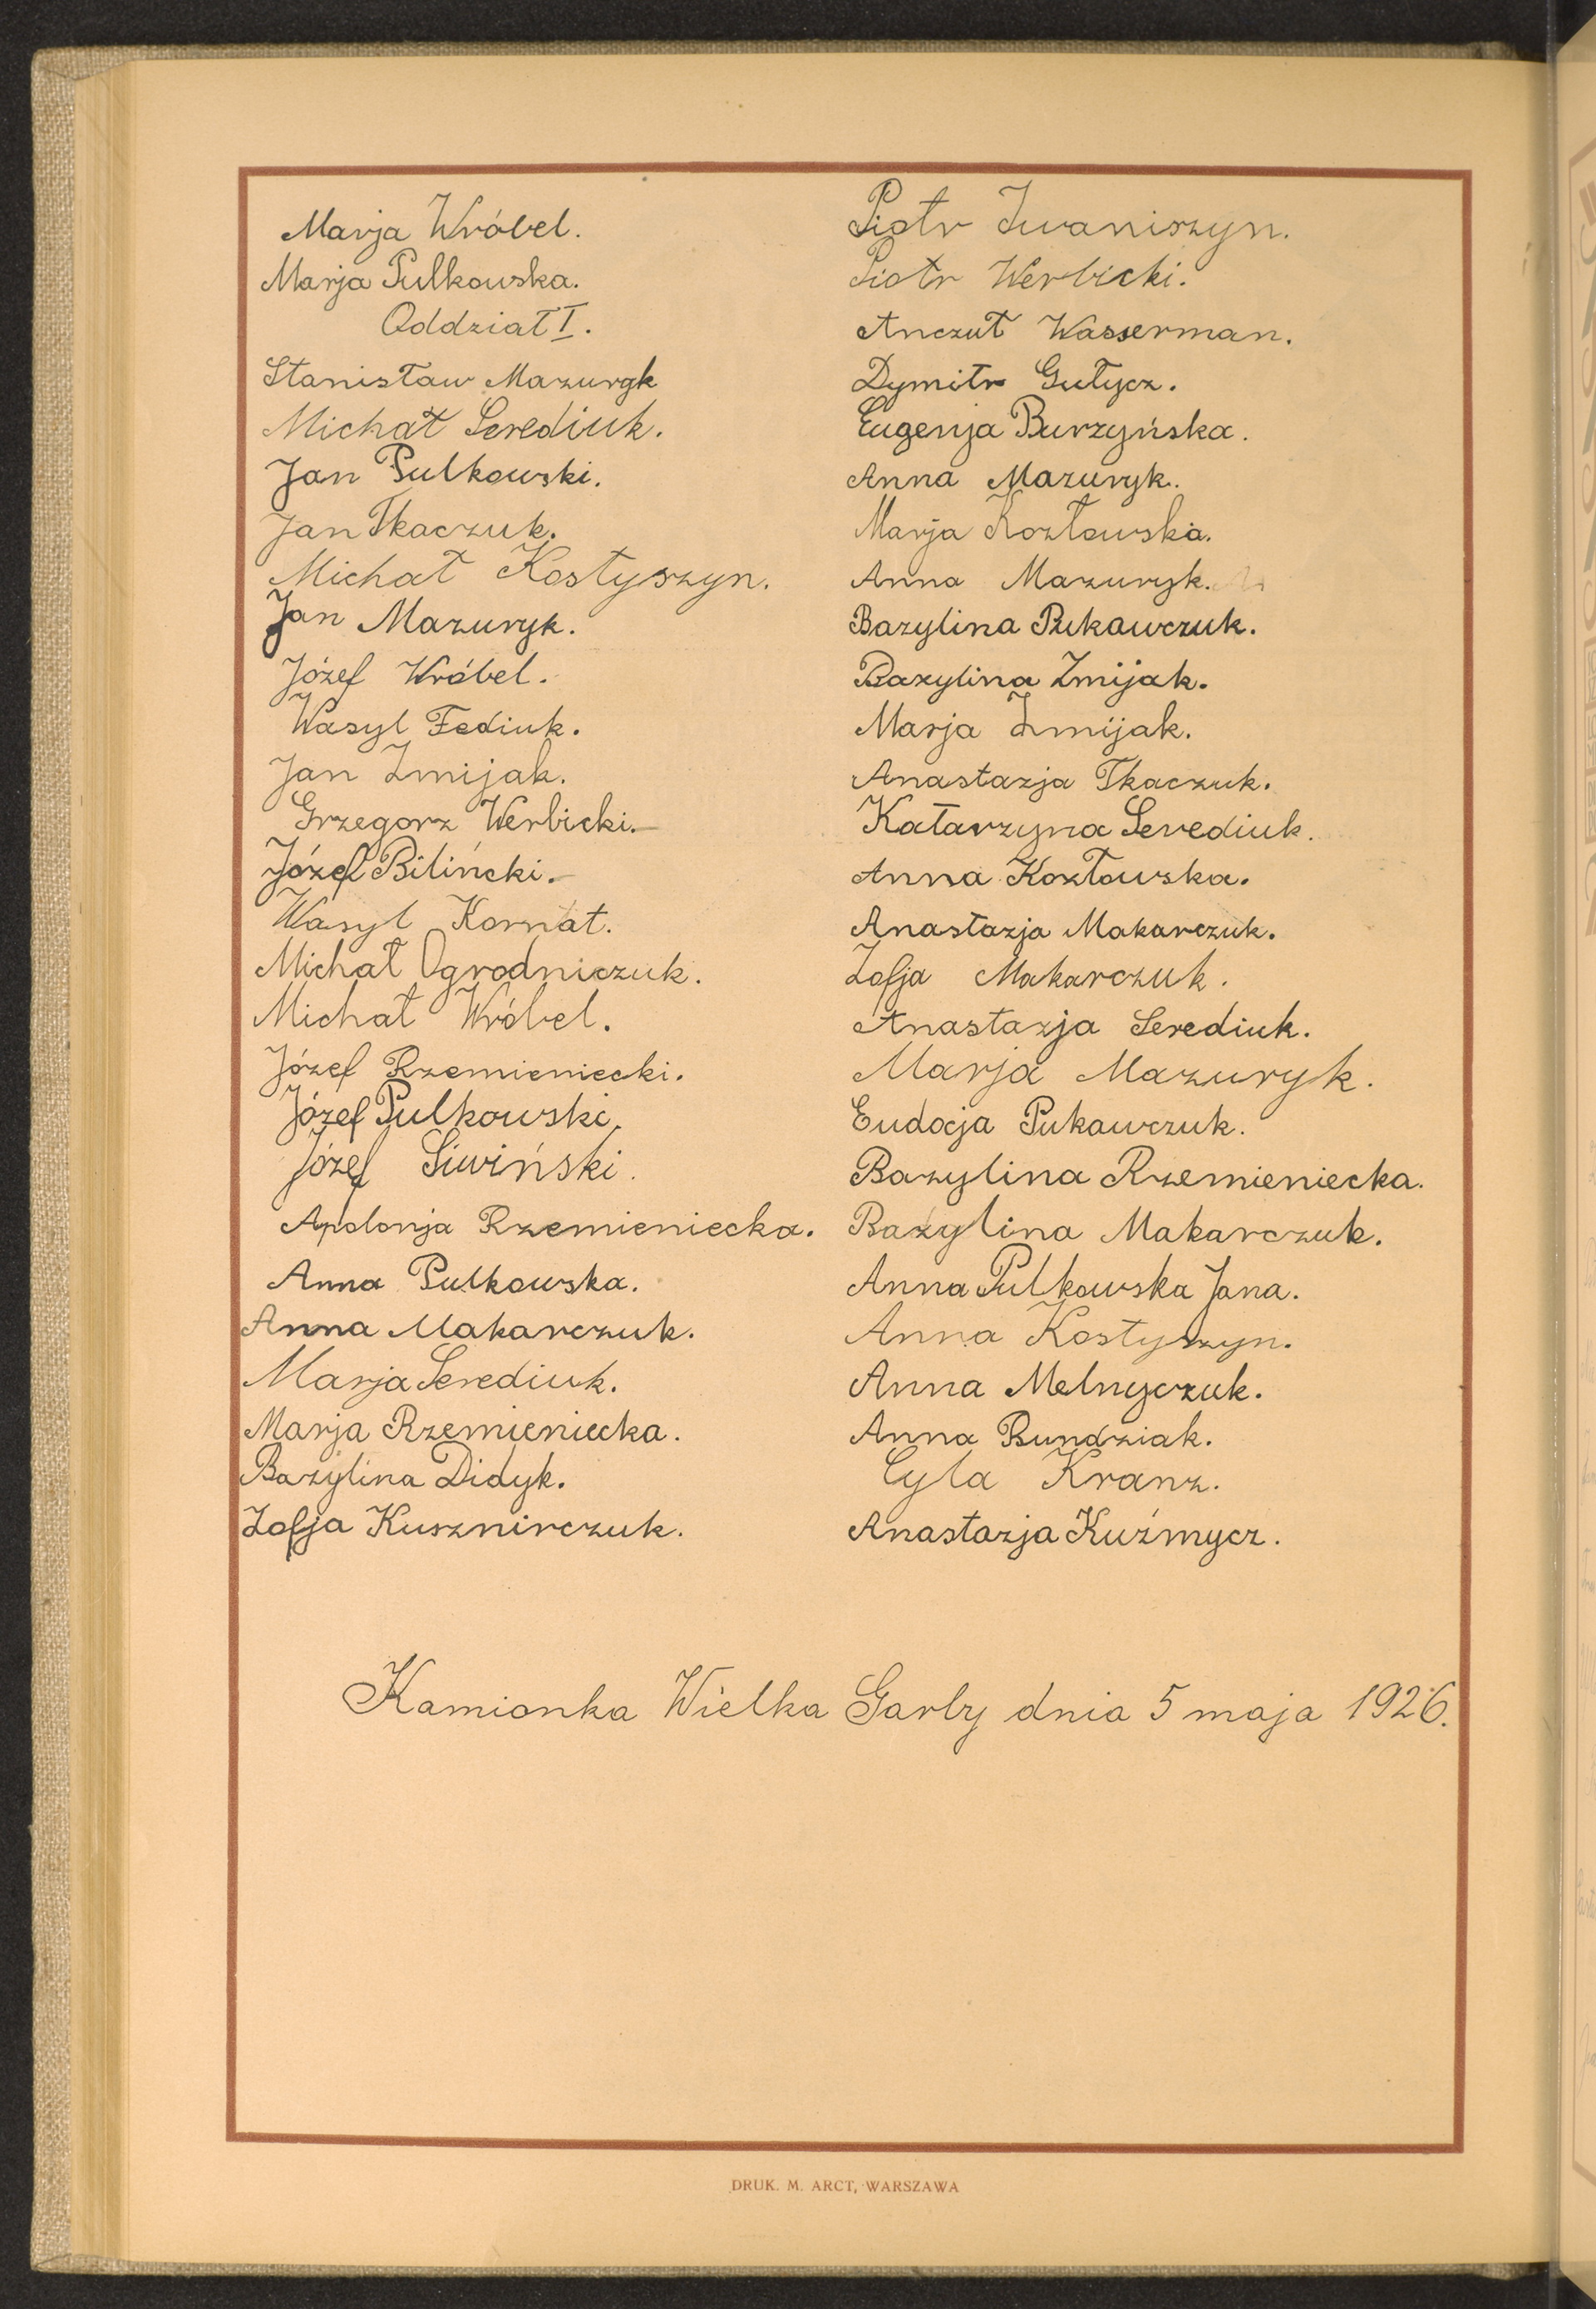 Marja Wróbel.
Marja Pulkowska.
Oddział I.
Stanisław Mazuryk
Michał Serediuk.
Jan Pulkowski.
Jan Tkaczuk.
Michał Kostyszyn.
Jan Mazuryk.
Józef Wróbel.
Wasyl Fediuk.
Jan Żmijak.
Grzegorz Werbicki.
Józef Biliński.
Wasyl Kornat.
Michał Ogrodniczuk.
Michał Wróbel.
Józef Rzemieniecki.
Józef Pulkowski.
Józef Siwiński.
Apolonja Rzemieniecka.
Anna Pulkowska.
Anna Makarczuk.
Marja Serediuk.
Marja Rzemieniecka.
Bazylina Didyk.
Zofja Kusznirczuk.
Piotr Iwaniszyn.
Piotr Werbicki.
Anczut Wasserman.
Dymitr Gutycz.
Eugenja Burzyńska.
Anna Mazuryk.
Marja Kozłowska.
Anna Mazuryk.
Bazylina Pukawczuk.
Bazylina Żmijak.
Marja Żmijak.
Anastazja Tkaczuk.
Katarzyna Serediuk.
Anna Kozłowska.
Anastazja Makarczuk.
Zofja Makarczuk.
Anastazja Serediuk.
Marja Mazuryk.
Eudocja Pukawczuk.
Bazylina Rzemieniecka.
Bazylina Makarczuk.
Anna Pulkowska Jana.
Anna Kostyszyn.
Anna Melnyczuk.
Anna Bundziak.
Cyla Kranz.
Anastazja Kuźmycz.
Kamionka Wielka Garby dnia 5 maja 1926.
DRUK. M. ARCT, WARSZAWA